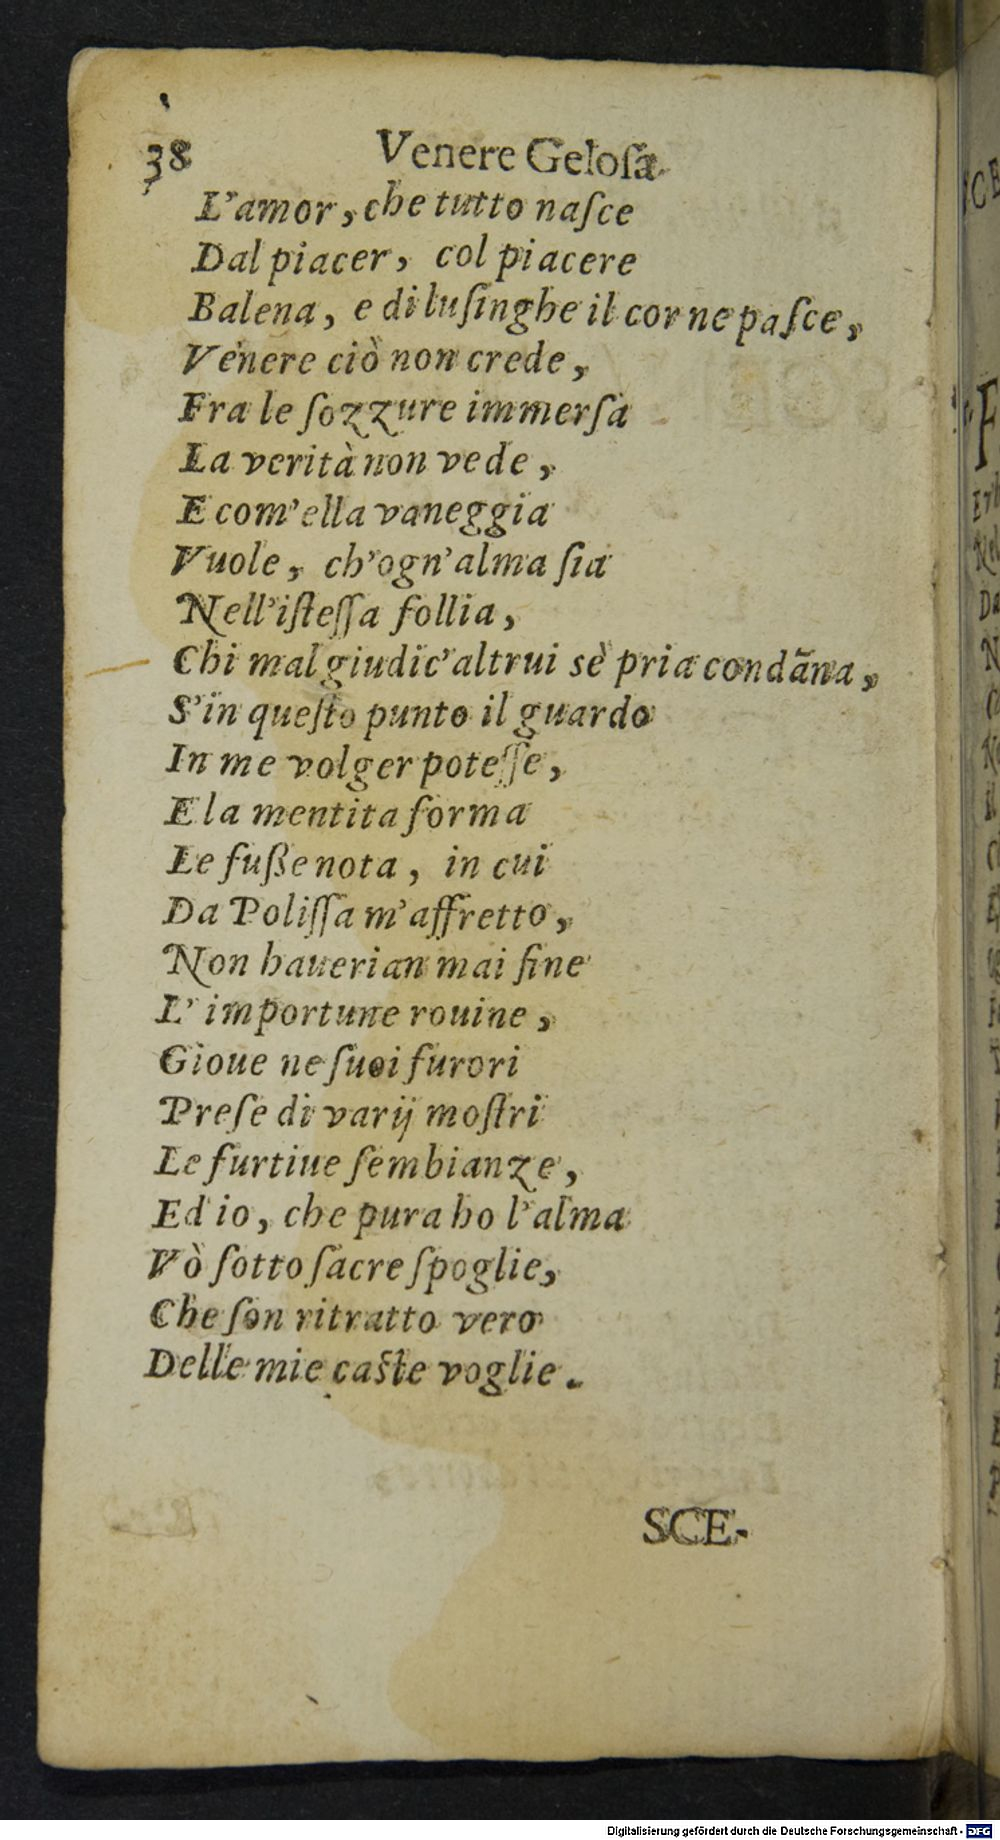 38 Venere Geloſa
L'amor, che tutto naſce
Dal piacer, col piacere
Balena, e di luſinghe il cor ne paſce,
Venere ciò non crede,
Fra le ſozzure immerſa
La verità non vede,
E com'ella vaneggia
Vuole, ch'ogn'alma ſia
Nell'iſteſſa follia,
Chi mal giudic'altrui sè pria condãna,
S'in queſto punto il guardo
In me volger poteſſe,
E la mentita forma
Le fuße nota, in cui
Da Poliſſa m'affretto,
Non hauerian mai fine
L'importune rouine,
Gioue ne ſuoi furori
Preſe di varij moſtri
Le furtiue ſembianze,
Ed io, che pura ho l'alma
Vò ſotto ſacre ſpoglie,
Che ſon ritratto vero
Delle mie caſte voglie.
SCE-
Digitalisierung gefördert durch die Deutsche Forschungsgemeinschaft - DFG